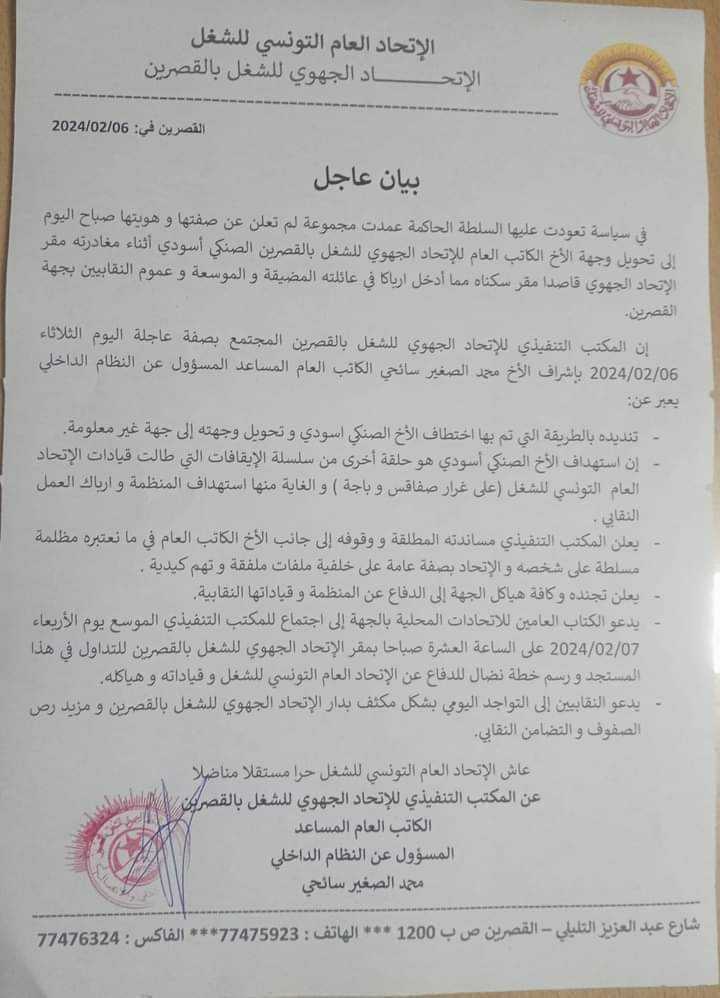 الإتحاد العام التونسي للشغل
الإتحـــــــــــاد الجهوي للشغل بالقصرين
القصرين في: 2024/02/06
بيان عاجل
في سياسة تعودت عليها السلطة الحاكمة عمدت مجموعة لم تعلن عن صفتها و هويتها صباح اليوم
إلى تحويل وجهة الأخ الكاتب العام للإتحاد الجهوي للشغل بالقصرين الصنكي أسودي أثناء مغادرته مقر
الإتحاد الجهوي قاصدا مقر سكناه مما أدخل ارباكا في عائلته المضيقة و الموسعة و عموم النقابيين بجهة
القصرين.
إن المكتب التنفيذي للإتحاد الجهوي للشغل بالقصرين المجتمع بصفة عاجلة اليوم الثلاثاء
2024/02/06 بإشراف الأخ محمد الصغير سائحي الكاتب العام المساعد المسؤول عن النظام الداخلي
يعبر عن:
- تنديده بالطريقة التي تم بها اختطاف الأخ الصنكي اسودي و تحويل وجهته إلى جهة غير معلومة.
- إن استهداف الأخ الصنكي أسودي هو حلقة أخرى من سلسلة الإيقافات التي طالت قيادات الإتحاد
العام التونسي للشغل (على غرار صفاقس و باجة ) و الغاية منها استهداف المنظمة و ارباك العمل
النقابي .
- يعلن المكتب التنفيذي مساندته المطلقة و وقوفه إلى جانب الأخ الكاتب العام في ما نعتبره مظلمة
مسلطة على شخصه و الإتحاد بصفة عامة على خلفية ملفات ملفقة و تهم كيدية .
- يعلن تجنده و كافة هياكل الجهة إلى الدفاع عن المنظمة و قياداتها النقابية.
- يدعو الكتاب العامين للاتحادات المحلية بالجهة إلى اجتماع للمكتب التنفيذي الموسع يوم الأربعاء
2024/02/07 على الساعة العشرة صباحا بمقر الإتحاد الجهوي للشغل بالقصرين للتداول في هذا
المستجد و رسم خطة نضال للدفاع عن الإتحاد العام التونسي للشغل و قياداته و هياكله.
- يدعو النقابيين إلى التواجد اليومي بشكل مكثف بدار الإتحاد الجهوي للشغل بالقصرين و مزيد رص
الصفوف و التضامن النقابي.
عاش الإتحاد العام التونسي للشغل حرا مستقلا مناضلا
عن المكتب التنفيذي للإتحاد الجهوي للشغل بالقصرين
الكاتب العام المساعد
المسؤول عن النظام الداخلي
محمد الصغير سائحي
شارع عبد العزيز التليلي – القصرين ص ب 1200 *** الهاتف : 77475923*** الفاكس : 77476324